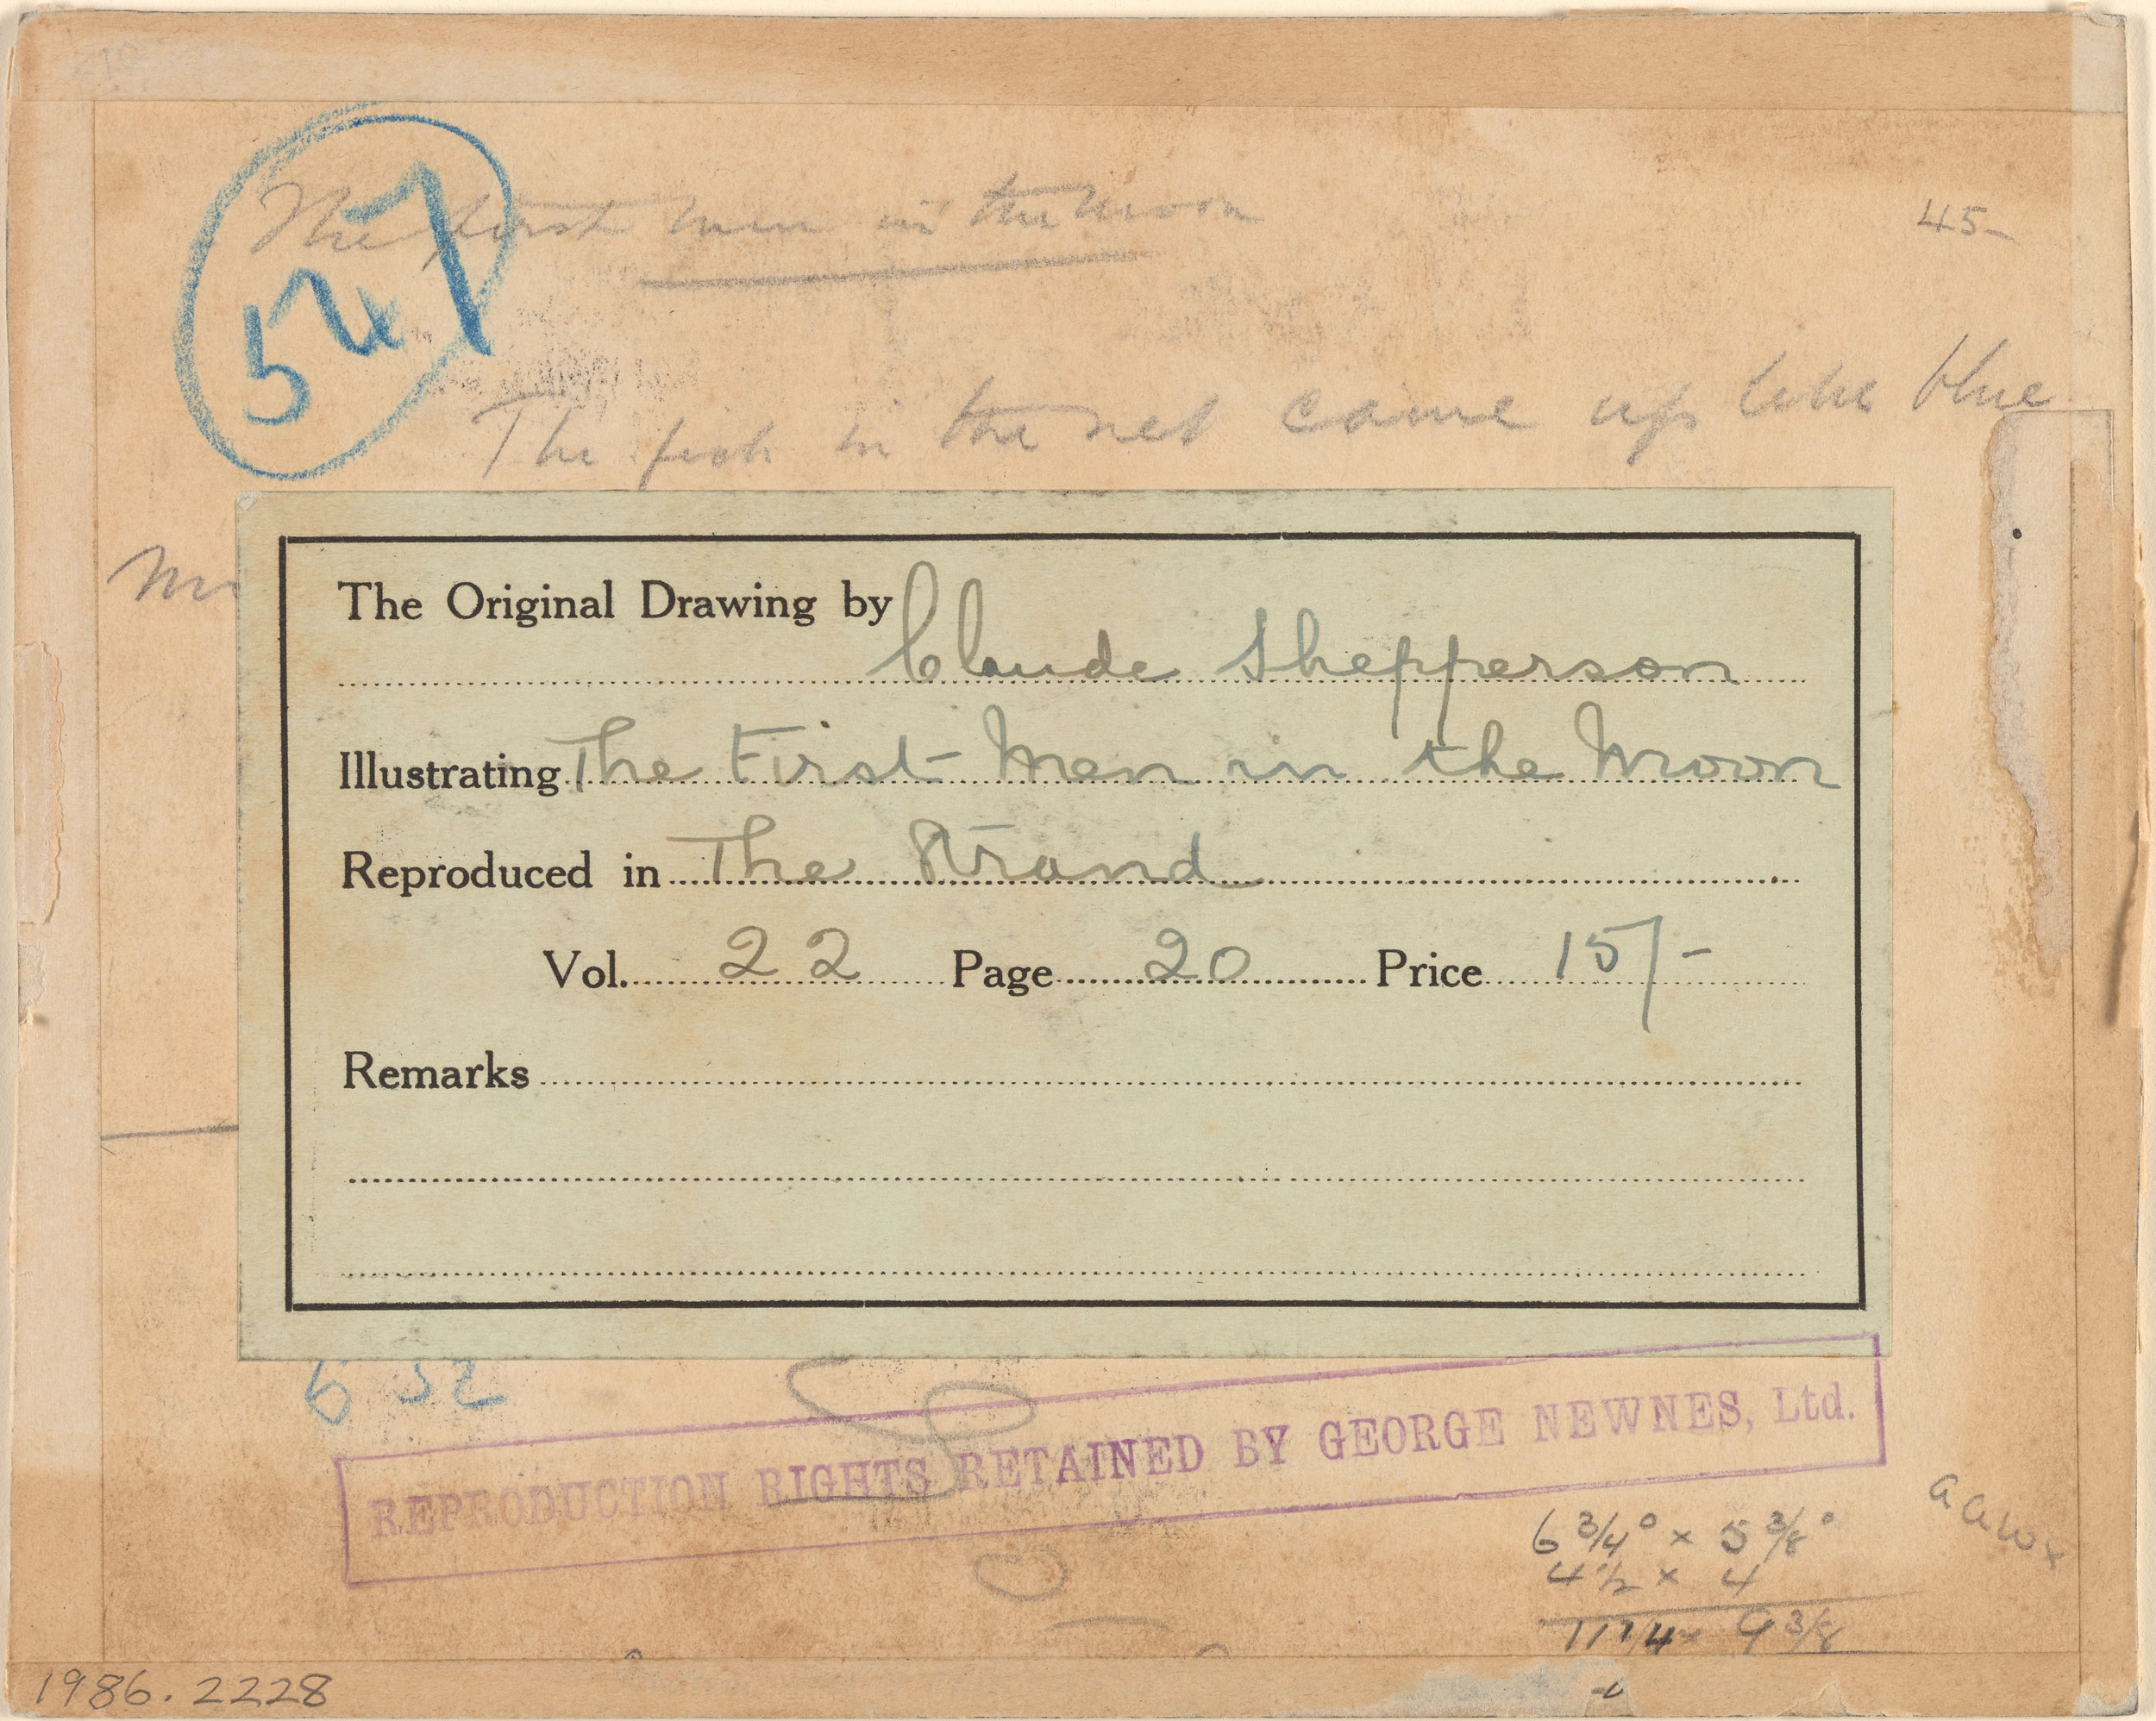 The first men in the Moon
45-
The fish in the net came up like blue
The Original Drawing by
Claude Shepperson
Illustrating The First Men in the Moon
Reproduced in The Strand
Vol. 22 Page 20 Price 15/-
Remarks
6 52
REPRODUCTION RIGHTS RETAINED BY GEORGE NEWNES, Ltd.
6 3/4 × 5 3/8
4 1/2 × 4
11 1/4 × 9 3/8
1986.2228